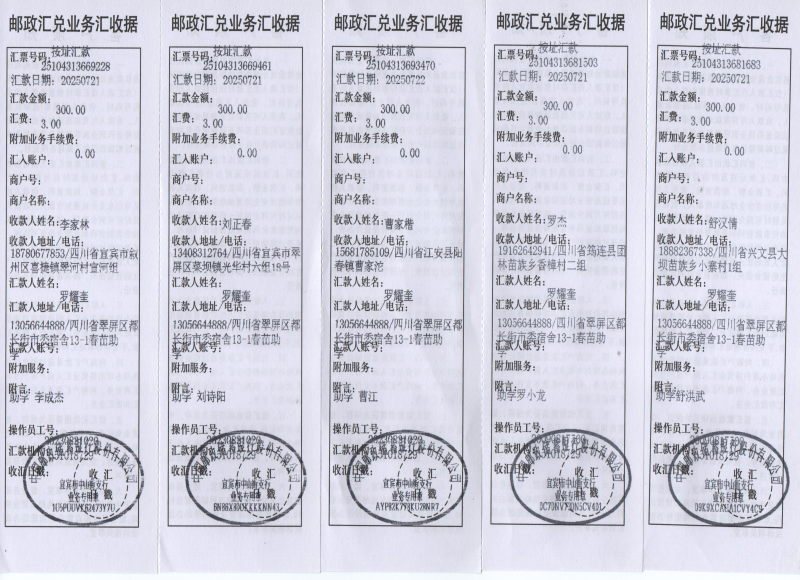 邮政汇兑业务汇收据
汇票号码:按址汇款
25104313669228
汇款日期: 20250721
汇款金额:
300.00
汇费:
3.00
附加业务手续费:
0.00
汇入账户:
商户号:
商户名称:
收款人姓名:李家林
收款人地址/电话:
18780677853/四川省宜宾市叙
州区喜捷镇翠河村宣河组
汇款人姓名:
罗耀奎
汇款人地址/电话:
13056644888/四川省翠屏区都
长街市委宿舍13-1春苗助
学
汇款人账号:
附加服务:
附言:
助学 李成杰
操作员工号:
汇款机构号:
收汇日戳:
收汇
日戳
宜宾市中山街支行
业务专用章
邮政汇兑业务汇收据
汇票号码:按址汇款
25104313669461
汇款日期: 20250721
汇款金额:
300.00
汇费:
3.00
附加业务手续费:
0.00
汇入账户:
商户号:
商户名称:
收款人姓名:刘正春
收款人地址/电话:
13408312764/四川省宜宾市翠
屏区菜坝镇光华村六组18号
汇款人姓名:
罗耀奎
汇款人地址/电话:
13056644888/四川省翠屏区都
长街市委宿舍13-1春苗助
学
汇款人账号:
附加服务:
附言:
助学 刘诗阳
操作员工号:
汇款机构号:
收汇日戳:
收汇
日戳
宜宾市中山街支行
业务专用章
邮政汇兑业务汇收据
汇票号码:按址汇款
25104313693470
汇款日期: 20250722
汇款金额:
300.00
汇费:
3.00
附加业务手续费:
0.00
汇入账户:
商户号:
商户名称:
收款人姓名:曹家楷
收款人地址/电话:
15681785109/四川省江安县阳
春镇曹家沱
汇款人姓名:
罗耀奎
汇款人地址/电话:
13056644888/四川省翠屏区都
长街市委宿舍13-1春苗助
学
汇款人账号:
附加服务:
附言:
助学 曹江
操作员工号:
汇款机构号:
收汇日戳:
收汇
日戳
宜宾市中山街支行
业务专用章
邮政汇兑业务汇收据
汇票号码:按址汇款
25104313681503
汇款日期: 20250721
汇款金额:
300.00
汇费:
3.00
附加业务手续费:
0.00
汇入账户:
商户号:
商户名称:
收款人姓名:罗杰
收款人地址/电话:
19162642941/四川省筠连县团
林苗族乡香樟村二组
汇款人姓名:
罗耀奎
汇款人地址/电话:
13056644888/四川省翠屏区都
长街市委宿舍13-1春苗助
学
汇款人账号:
附加服务:
附言:
助学罗小龙
操作员工号:
汇款机构号:
收汇日戳:
收汇
日戳
宜宾市中山街支行
业务专用章
邮政汇兑业务汇收据
汇票号码:按址汇款
25104313681683
汇款日期: 20250721
汇款金额:
300.00
汇费:
3.00
附加业务手续费:
0.00
汇入账户:
商户号:
商户名称:
收款人姓名:舒汉情
收款人地址/电话:
18882367338/四川省兴文县大
坝苗族乡小寨村1组
汇款人姓名:
罗耀奎
汇款人地址/电话:
13056644888/四川省翠屏区都
长街市委宿舍13-1春苗助
学
汇款人账号:
附加服务:
附言:
助学舒洪武
操作员工号:
汇款机构号:
收汇日戳:
收汇
日戳
宜宾市中山街支行
业务专用章